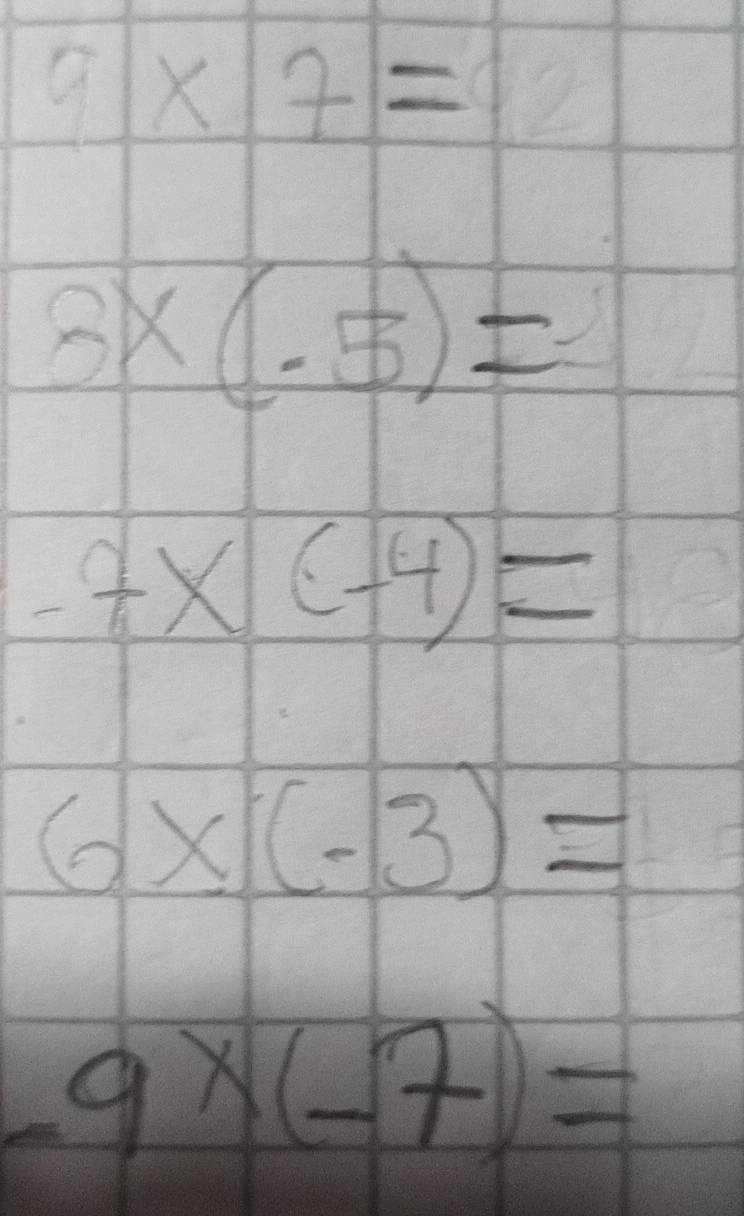 9 × 7 =
8 × (-5) =
-7 × (-4) =
6 × (-3) =
-9 × (-7) =